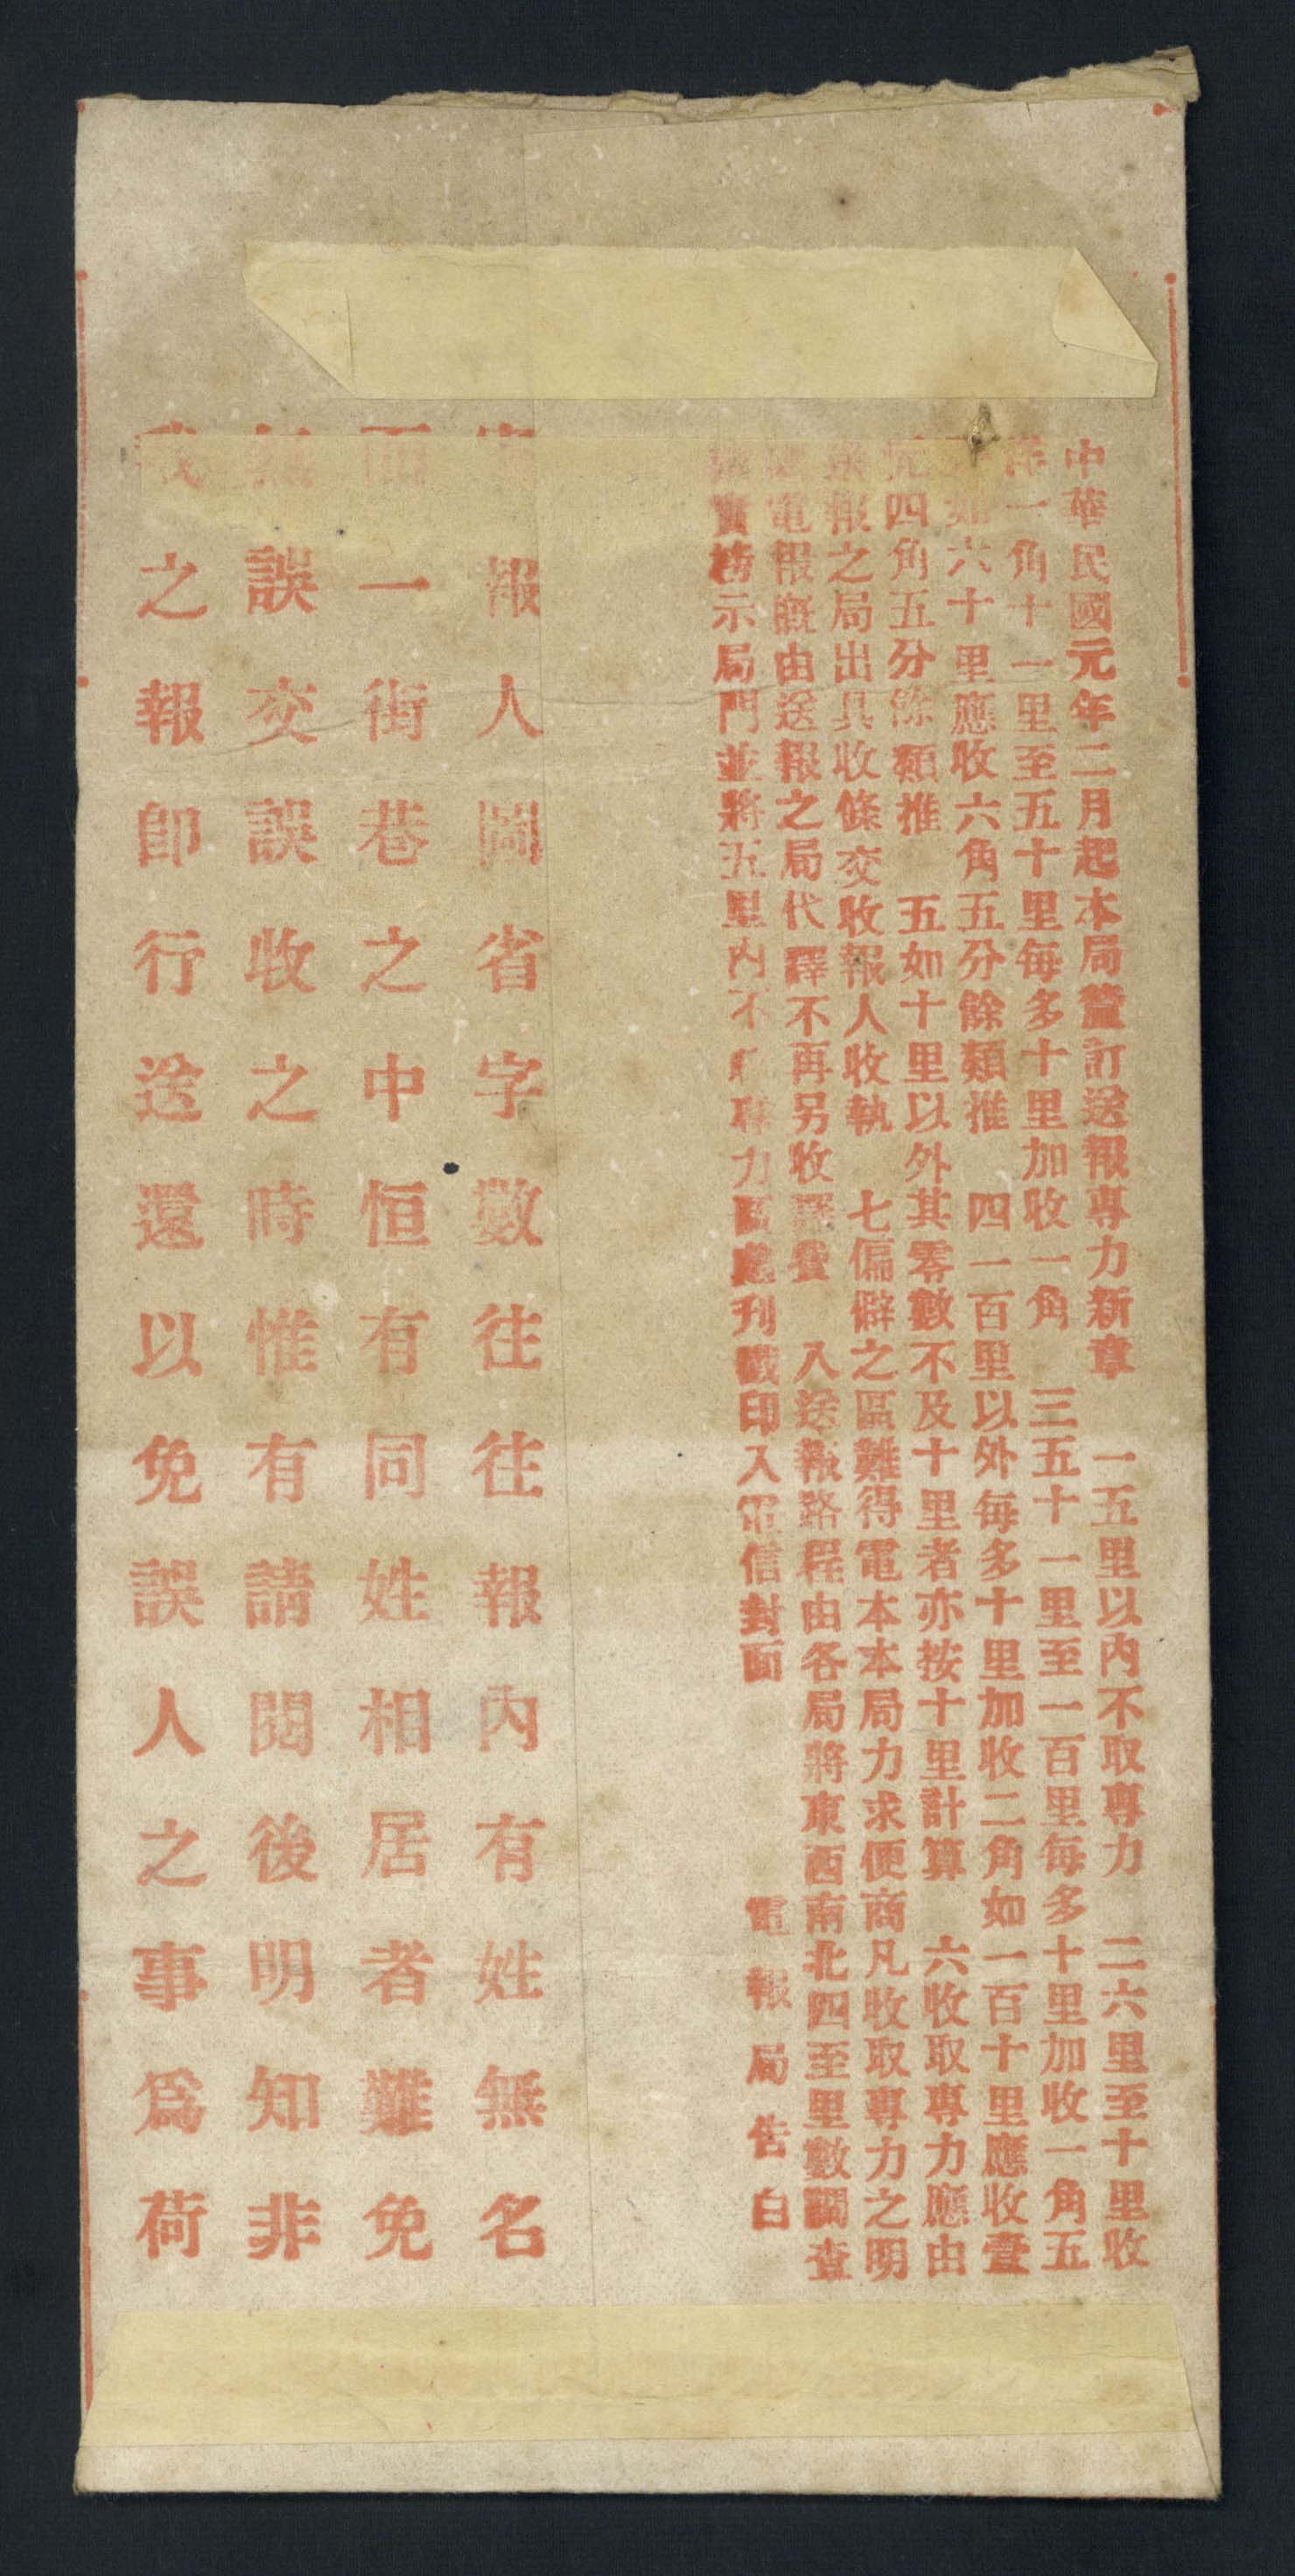 中華民國元年二月起本局釐訂送報專力新章　一五里以內不取專力　二六里至十里收
洋一角十一里至五十里每多十里加收一角　三五十一里至一百里每多十里加收一角五
如六十里應收六角五分餘類推　四一百里以外每多十里加收二角如一百十里應收壹
元四角五分餘類推　五如十里以外其零數不及十里者亦按十里計算　六收取專力應由
報之局出具收條交收報人收執　七偏僻之區難得電本本局力求便商凡收取專力之明
電報旣由送報之局代譯不再另收譯費　八送報路程由各局將東西南北四至里數調查
實榜示局門並將五里內不取專力區處刊戳印入電信封面　電報局告白
報人圖省字數往往報內有姓無名
而一街巷之中恒有同姓相居者難免
無誤交誤收之時惟有請閱後明知非
我之報卽行送還以免誤人之事爲荷